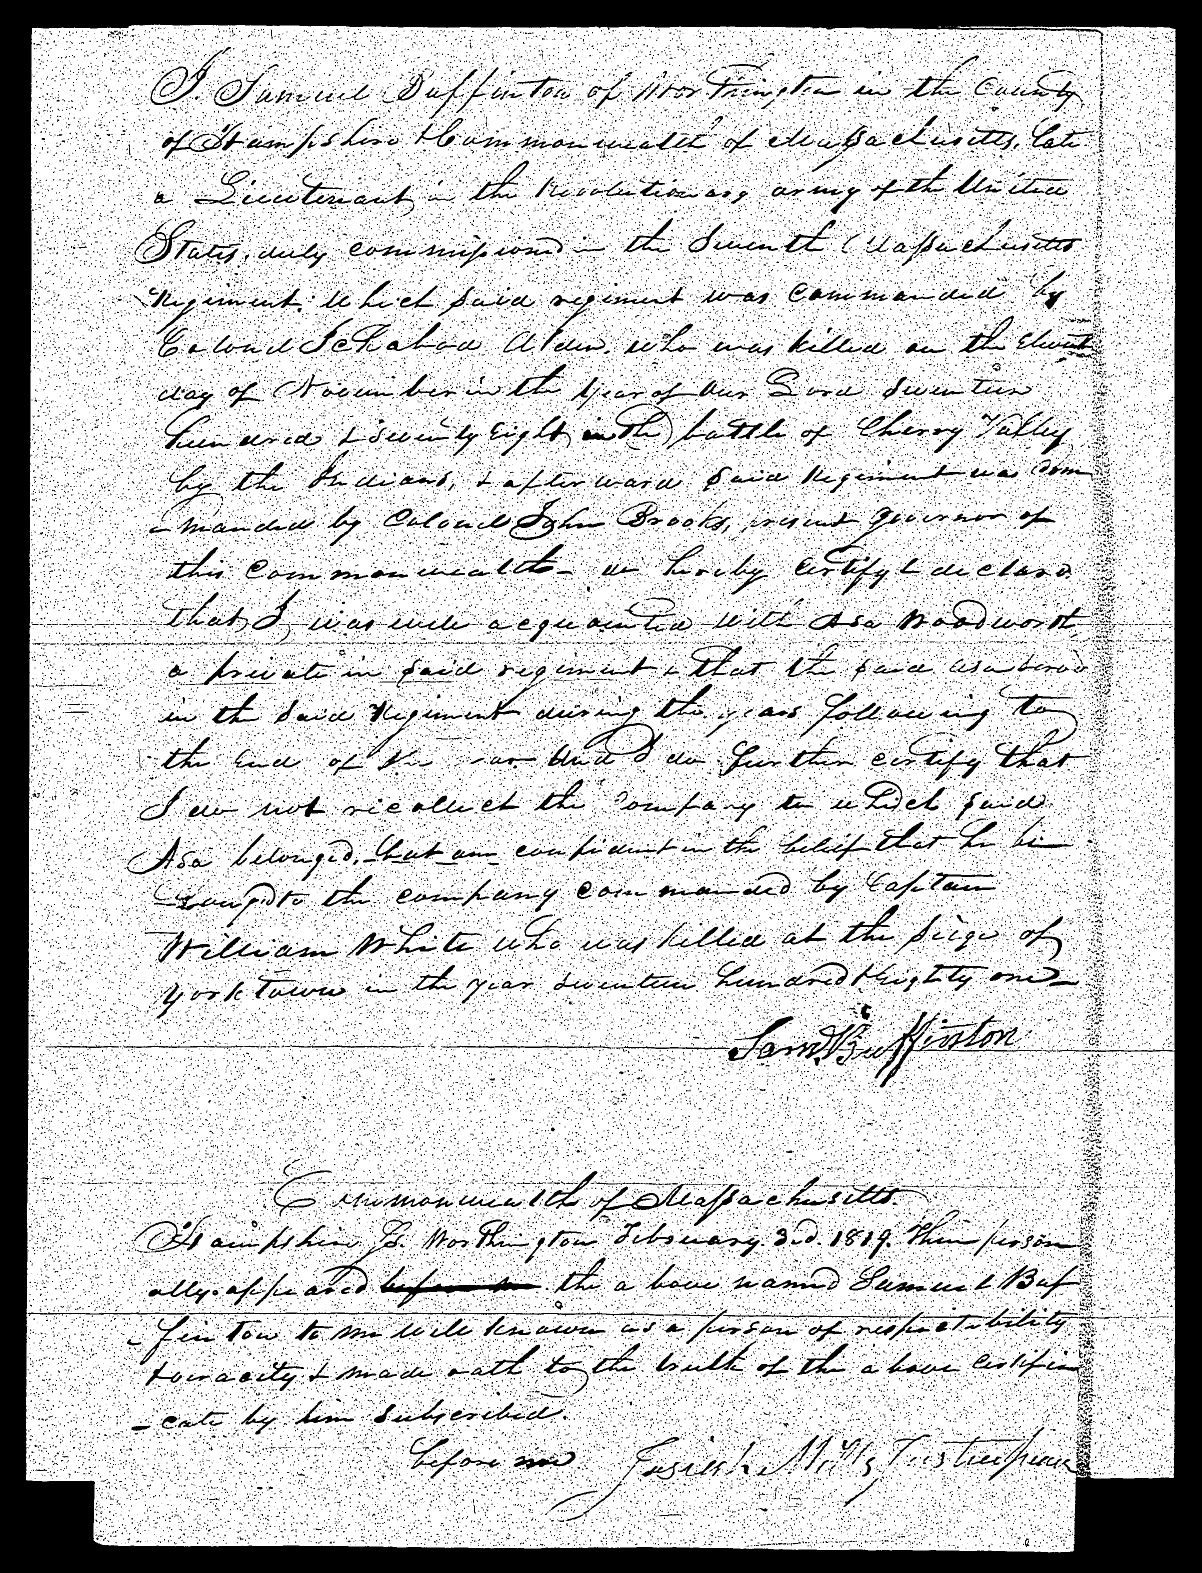 I. Samuel Buffinton of Worthington in the County
of Hampshire & Commonwealth of Massachusetts, late
a Lieutenant in the Revolutionary army of the United
States, duly commissioned in the Seventh Massachusetts
Regiment: which said regiment was commanded by
Colonel Ichabod Alden. who was killed on the eleventh
day of November in the year of Our Lord Seventeen
hundred & seventy Eight in the battle of Cherry Valley
by the Indians, & afterward said Regiment was com
-manded by Colonel John Brooks, present governor of
this Commonwealth- do hereby certify & declare
that I was well acquainted with Asa Woodworth,
a private in said regiment & that the said Asa served
in the said Regiment during the years following to
the End of the war And I do further certify that
I do not recollect the Company to which said
Asa belonged, but am confident in the belief that he be
-longed to the company commanded by Captain
William White who was killed at the siege of
York town in the year seventeen hundred & eighty one-
Saml Buffinton
Commonwealth of Massachusetts.
Hampshire Ss. Worthington February 3rd. 1819. Then person
ally appeared before me the above named Samuel Buf
-finton to me well known as a person of respectibility
& veracity & made oath to the truth of the above certifi
-cate by him subscribed.
before me Justice peace